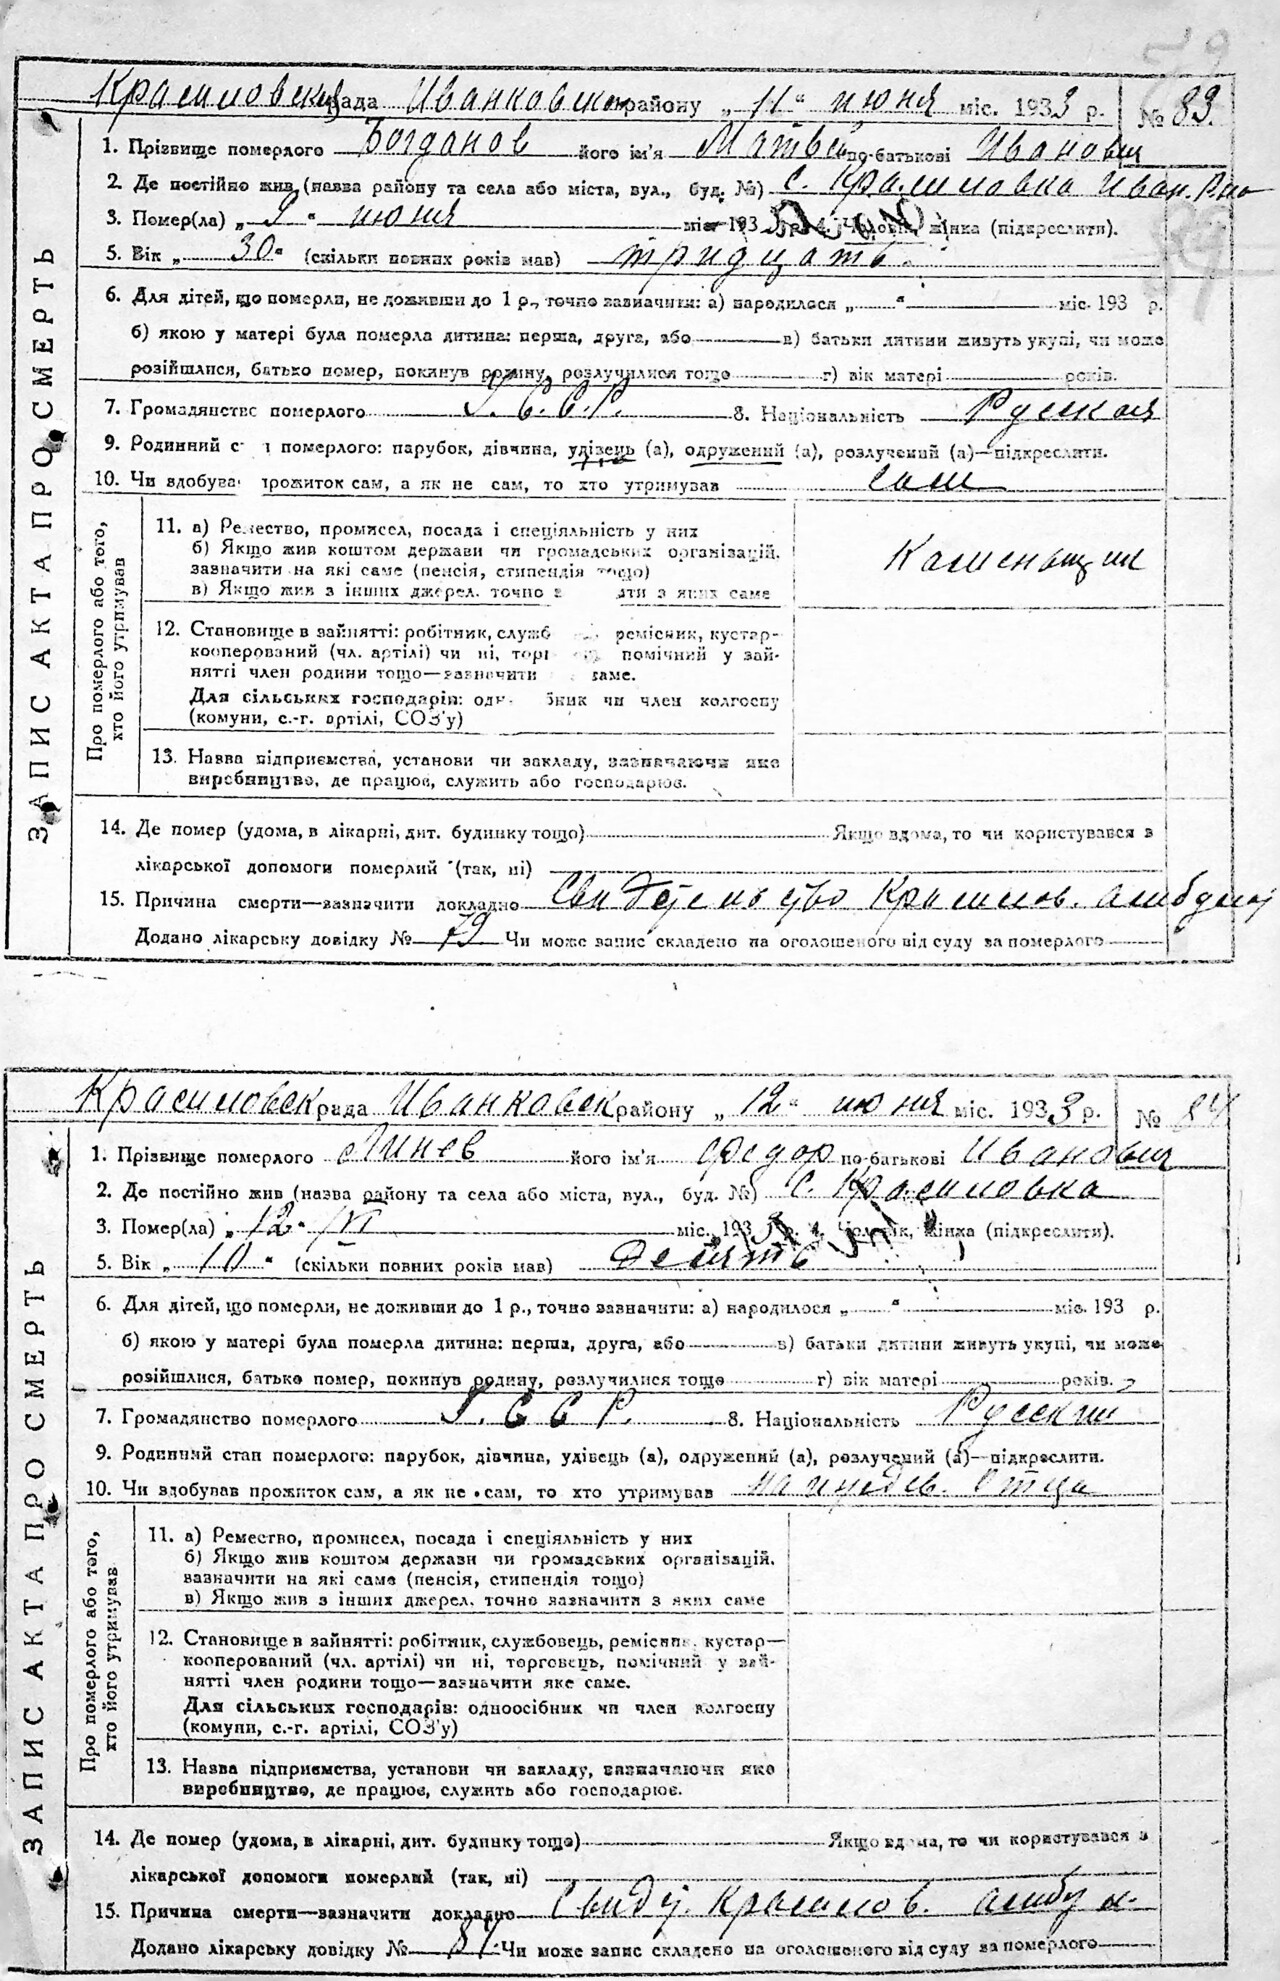 Красиловская рада Иванковского району „ 11 “ июня міс. 1933 р. № 83.
1. Прізвище померлого Богданов його ім'я Матвей по-батькові Иванович
2. Де постійно жив (назва району та села або міста, вул., буд. №) с. Красиловка Иван. Р-на
3. Помер(ла) „ 9 “ июня міс. 193 р. 4. Чоловік, жінка (підкреслити).
5. Вік „ 30 “ (скільки повних років мав) тридцать
6. Для дітей, що померли, не доживши до 1 р., точно зазначити: а) народилося „ “ міс. 193 р.
б) якою у матері була померла дитина: перша, друга, або в) батьки дитини живуть укупі, чи може
розійшлися, батько помер, покинув родину, розлучилися тощо г) вік матері років.
7. Громадянство померлого У.С.С.Р. 8. Національність Русская
9. Родинний с н померлого: парубок, дівчина, удівець (а), одружений (а), розлучений (а)—підкреслити.
10. Чи вдобува прожиток сам, а як не сам, то хто утримував сам
ЗАПИС АКТА ПРО СМЕРТЬ
Про померлого або того, хто його утримував
11. а) Ремество, промисел, посада і спеціяльність у них
б) Якщо жив коштом держави чи громадських організацій,
зазначити на які саме (пенсія, стипендія тощо)
в) Якщо жив з інших джерел, точно з ати з яких саме
Каменьщик
12. Становище в зайнятті: робітник, служб ремісник, кустар-
кооперований (чл. артілі) чи ні, торг помічний у зай-
нятті член родини тощо—зазначити саме.
Для сільських господарів: од бник чи член колгоспу
(комуни, с.-г. артілі, СОЗ'у)
13. Назва підприємства, установи чи закладу, зазначаючи яке
виробництво, де працює, служить або господарює.
14. Де помер (удома, в лікарні, дит. будинку тощо) Якщо вдома, то чи користувався з
лікарської допомоги померлий (так, ні)
15. Причина смерти—зазначити докладно Свидетельство Красилов. амбулат
Додано лікарську довідку № 79 Чи може запис складено на оголошеного від суду за померлого
Красиловск рада Иванковск району „ 12 “ июня міс. 1933 р. № 84
1. Прізвище померлого Линев його ім'я Федор по-батькові Иванович
2. Де постійно жив (назва району та села або міста, вул., буд. №) с. Красиловка
3. Помер(ла) „ 12 “ VI міс. 193 р. 4. Чоловік, жінка (підкреслити).
5. Вік „ 10 “ (скільки повних років мав) десять
6. Для дітей, що померли, не доживши до 1 р., точно зазначити: а) народилося „ “ міс. 193 р.
б) якою у матері була померла дитина: перша, друга, або в) батьки дитини живуть укупі, чи може
розійшлися, батько помер, покинув родину, розлучилися тоще г) вік матері років.
7. Громадянство померлого У.ССР. 8. Національність Русский
9. Родинний стан померлого: парубок, дівчина, удівець (а), одружений (а), розлучений (а)—підкреслити.
10. Чи вдобував прожиток сам, а як не сам, то хто утримував на иждев. Отца
ЗАПИС АКТА ПРО СМЕРТЬ
Про померлого або того, хто його утримував
11. а) Ремество, промисел, посада і спеціяльність у них
б) Якщо жив коштом держави чи громадських організацій,
зазначити на які саме (пенсія, стипендія тощо)
в) Якщо жив з інших джерел, точно зазначити з яких саме
12. Становище в зайнятті: робітник, службовець, ремісник, кустар—
кооперований (чл. артілі) чи ні, торговець, помічний у зай-
нятті член родини тощо—зазначити яке саме.
Для сільських господарів: одноосібник чи член колгоспу
(комуни, с.-г. артілі, СОЗ'у)
13. Назва підприємства, установи чи закладу, зазначаючи яке
виробництво, де працює, служить або господарює.
14. Де помер (удома, в лікарні, дит. будинку тощо) Якщо вдома, то чи користувався з
лікарської допомоги померлий (так, ні)
15. Причина смерти—зазначити докладно Свидет. Красилов. амбул.
Додано лікарську довідку № 84. Чи може запис складено на оголошеного від суду за померлого